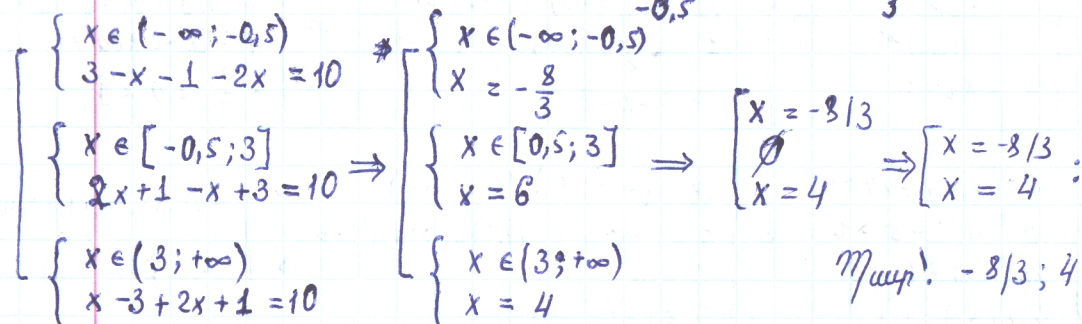 -0,5 3
x ∈ (-∞; -0,5)
3 - x - 1 - 2x = 10
x ∈ [-0,5; 3]
2x + 1 - x + 3 = 10
x ∈ (3; +∞)
x - 3 + 2x + 1 = 10
⇒
x ∈ (-∞; -0,5)
x = -8/3
x ∈ [0,5; 3]
x = 6
x ∈ (3; +∞)
x = 4
⇒
x = -8/3
∅
x = 4
⇒
x = -8/3
x = 4 :
- 8/3 ; 4